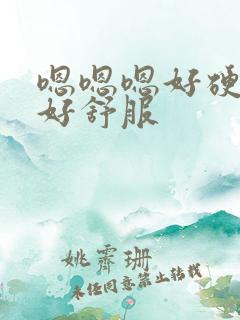 嗯嗯嗯好硬
好舒服
姚霁珊
未经同意禁止转载